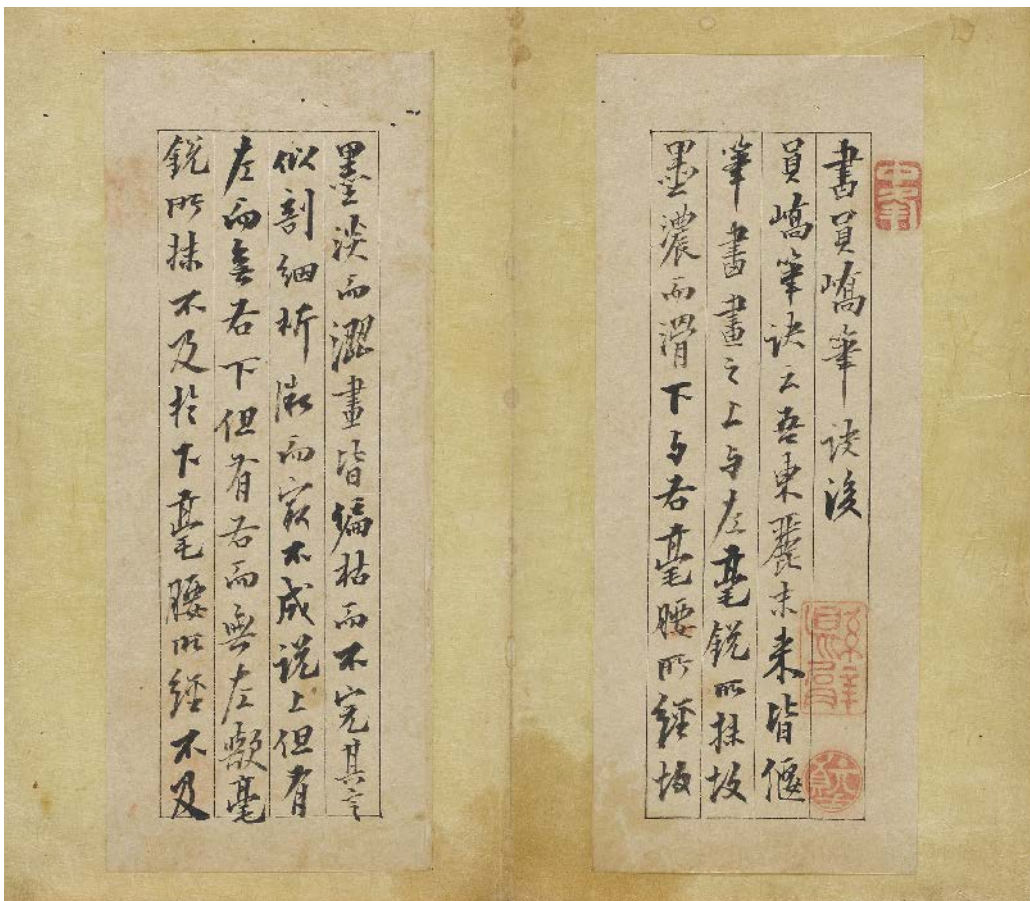 書員嶠筆訣後
員嶠筆訣云吾東麗末來皆偃
筆書畫之上与左毫銳所抹故
墨濃而滑下与右毫腰所經故
墨淡而澀畫皆偏枯而不完其言
似剖細析微而寂不成說上但有
左而無右下但有右而無左歟毫
銳所抹不及於下毫腰所經不及